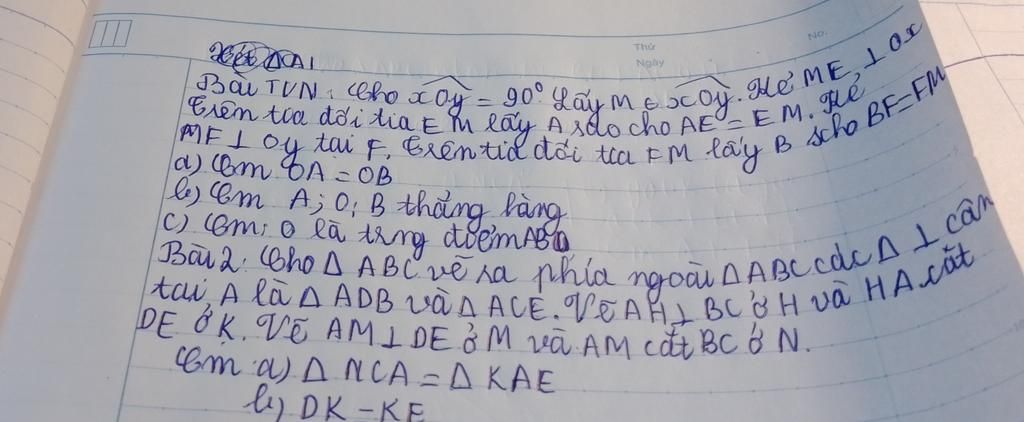 Thứ
Ngày
No.
Xét Δ
Bài TVN. Cho xOy = 90° Lấy M ∈ xOy. Kẻ ME ⊥ Ox
trên tia đối tia EM lấy A sao cho AE = EM. Kẻ
MF ⊥ Oy tại F, trên tia đối tia FM lấy B scho BF=FM
a) Cm OA = OB
b) Cm A; O; B thẳng hàng
c) Cm: O là trng điểm AB
Bài 2. Cho Δ ABC vẽ ra phía ngoài Δ ABC các Δ ⊥ cân
tại A là Δ ADB và Δ ACE. Vẽ AH ⊥ BC ở H và HA cắt
DE ở K. Vẽ AM ⊥ DE ở M và AM cắt BC ở N.
Cm a) Δ NCA = Δ KAE
b) DK = KE